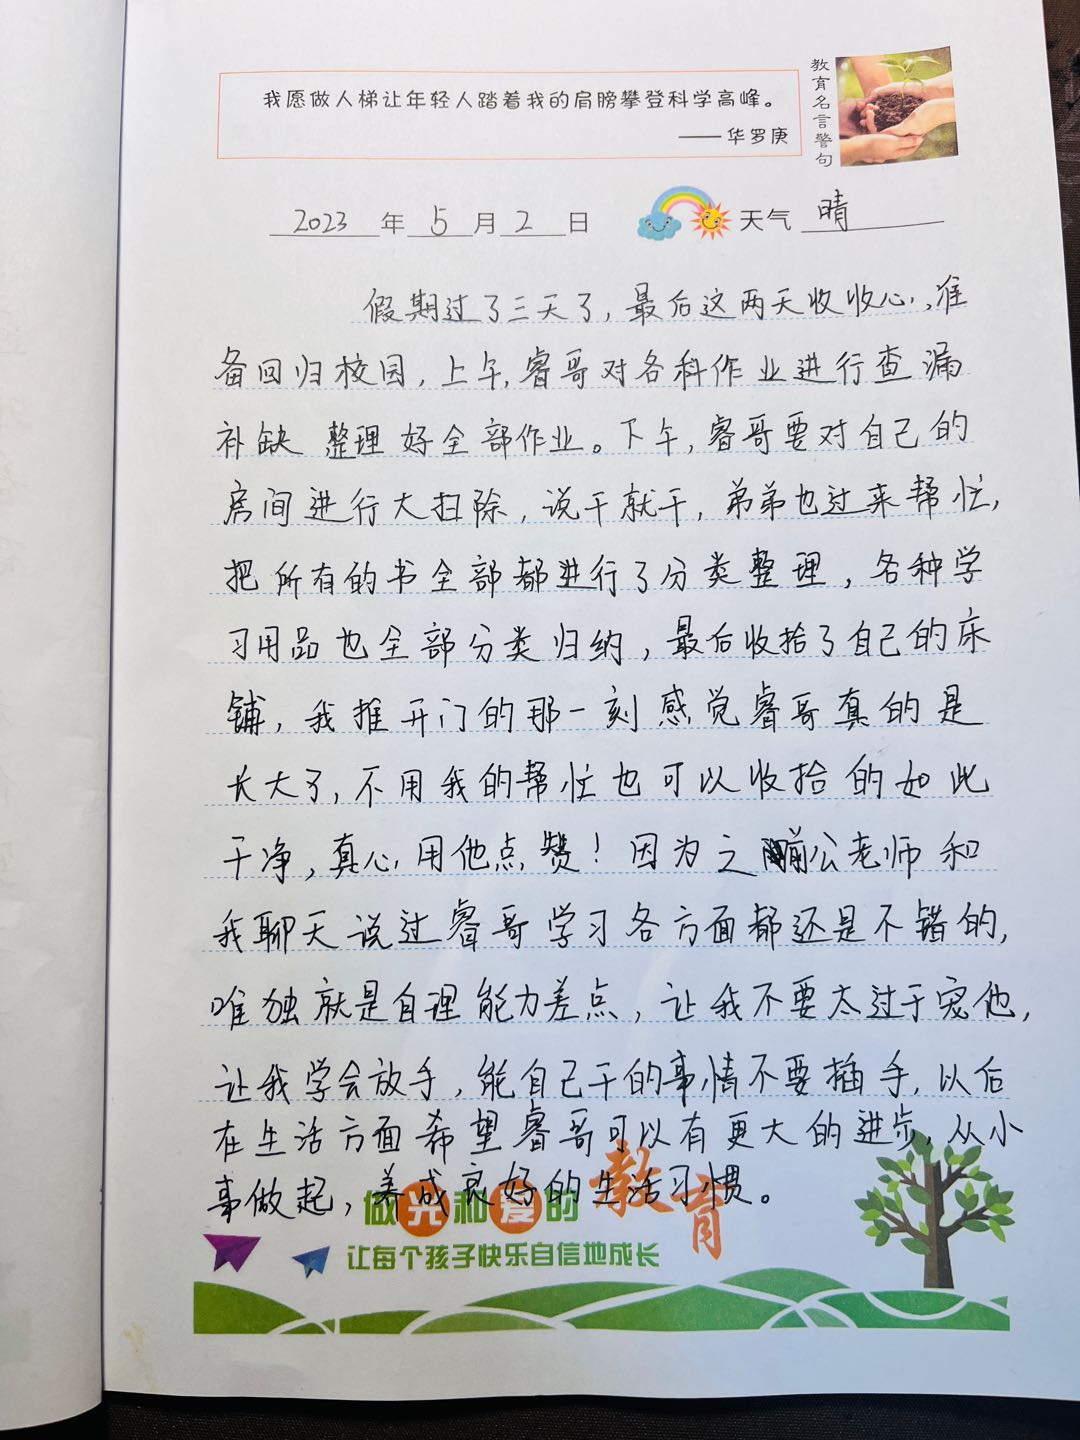 我愿做人梯让年轻人踏着我的肩膀攀登科学高峰。
——华罗庚
教育名言警句
2023年5月2日 天气 晴
假期过了三天了，最后这两天收收心，准
备回归校园，上午，睿哥对各科作业进行查漏
补缺 整理好全部作业。下午，睿哥要对自己的
房间进行大扫除，说干就干，弟弟也过来帮忙，
把所有的书全部都进行了分类整理，各种学
习用品也全部分类归纳，最后收拾了自己的床
铺，我推开门的那一刻感觉睿哥真的是
长大了，不用我的帮忙也可以收拾的如此
干净，真心用他点赞！因为之前公老师和
我聊天说过睿哥学习各方面都还是不错的，
唯独就是自理能力差点，让我不要太过于宠他，
让我学会放手，能自己干的事情不要插手，以后
在生活方面希望睿哥可以有更大的进步，从小
事做起，养成良好的生活习惯。
做光和爱的教育
让每个孩子快乐自信地成长